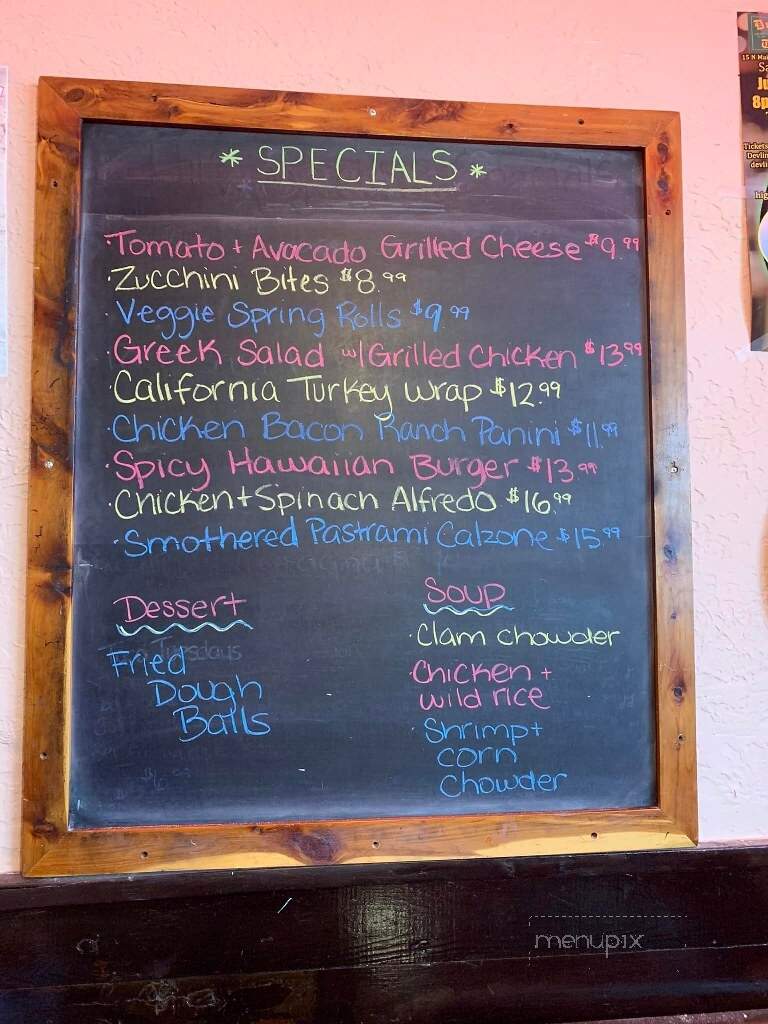 * SPECIALS *
·Tomato + Avacado Grilled Cheese $9.99
·Zucchini Bites $8.99
·Veggie Spring Rolls $9.99
·Greek Salad w/ Grilled Chicken $13.99
·California Turkey Wrap $12.99
·Chicken Bacon Ranch Panini $11.99
·Spicy Hawaiian Burger $13.99
·Chicken + Spinach Alfredo $16.99
·Smothered Pastrami Calzone $15.99
Dessert
Tuesdays
Fried
Dough
Balls
Soup
·Clam chowder
·Chicken +
wild rice
·Shrimp +
corn
chowder
15 N Ma
Ju
8p
Tickets
Devlin
devli
menupix